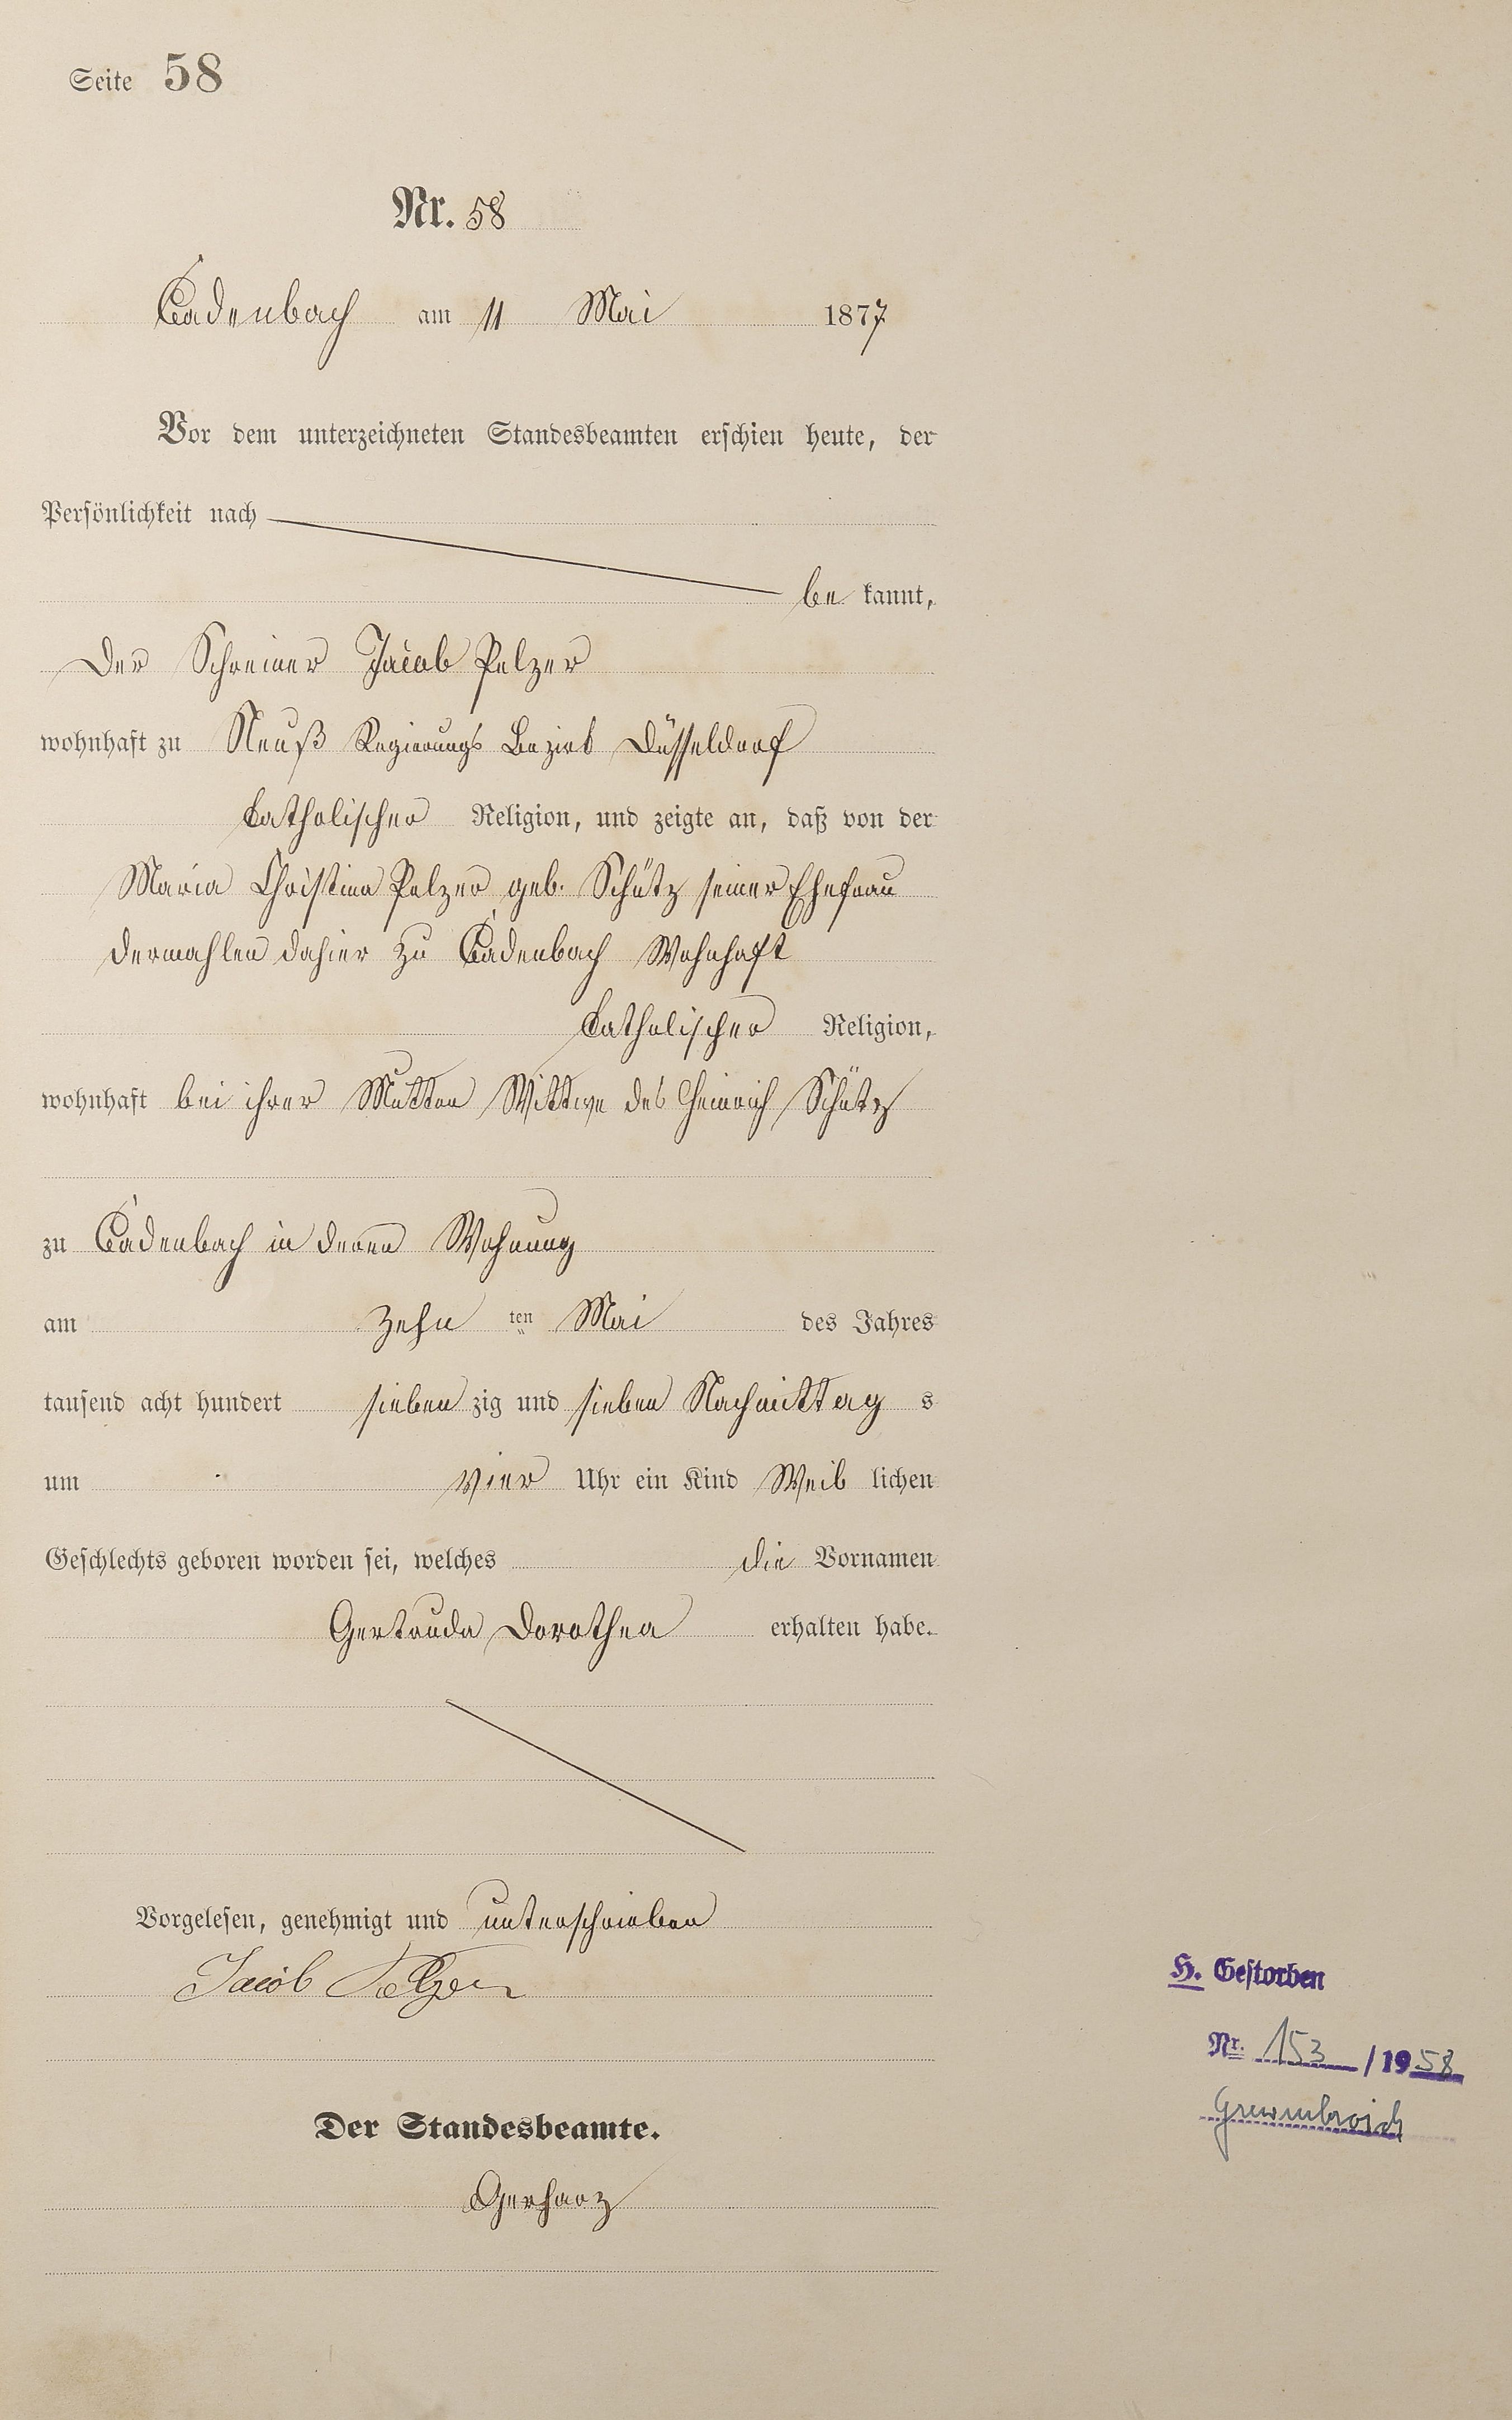 Seite 58
Nr. 58
Cadenbach am 11 Mai 1877
Vor dem unterzeichneten Standesbeamten erschien heute, der
Persönlichkeit nach
be kannt,
Der Schreiner Jacob Pelzer
wohnhaft zu Neuß Regierungs Bezirk Düsseldorf
katholischer Religion, und zeigte an, daß von der
Maria Christina Pelzer geb. Schütz seiner Ehefrau
dermahlen dahier zu Cadenbach Wohnhaft
katholischer Religion,
wohnhaft bei ihrer Mutter Wittwe des Heinrich Schütz
zu Cadenbach in deren Wohnung
am zehn ten Mai des Jahres
tausend acht hundert sieben zig und sieben Nachmittag s
um Vier Uhr ein Kind Weib lichen
Geschlechts geboren worden sei, welches die Vornamen
Gertruda Dorothea erhalten habe.
Vorgelesen, genehmigt und unterschrieben
Jacob Pelzer
Der Standesbeamte.
Gerharz
H. Gestorben
Nr. 153 / 1958
Grevenbroich